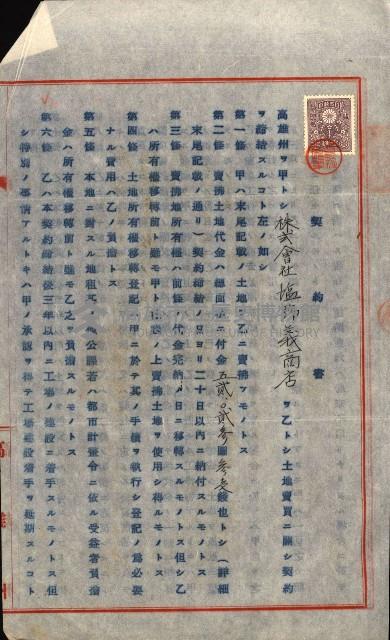 契約書
高雄州ヲ甲トシ株式會社塩　義商店ヲ乙トシ土地賣買ニ關シ契約
ヲ締結スルコト左ノ如シ
第一條　甲ハ末尾記載ノ土地ヲ乙ニ賣拂フモノトス
第二條　賣拂土地代金ハ總面ニ付金五貳〇貳參圓參　錢也トシ(詳細
末尾記載ノ通リ)契約締結ノ日ヨリ二十日以内ニ納付スルモノトス
第三條　賣拂地所有權ハ前條ノ代金完納ノ日ニ移轉スルモノトス但シ乙
ハ所有權移轉前ト雖モ甲ト　上賣拂土地ヲ使用シ得ルモノトス
第四條　土地所有權移轉登記ハ甲ニ於テ其ノ手續ヲ執行シ登記ノ爲必要
ナル費用ハ乙ノ負擔トス
第五條　本地ニ對スル地租其ノ他公課若ハ都市計畫令ニ依ル受益者負擔
金ハ所有權移轉前ト雖モ乙之ヲ負擔スルモノトス
第六條　乙ハ本契約締結後三年以内ニ工場ノ建設ニ着手スルモノトス但
シ特別ノ事情アルトキハ甲ノ承認ヲ得テ工場建設着手ヲ延期スルコト
高雄州